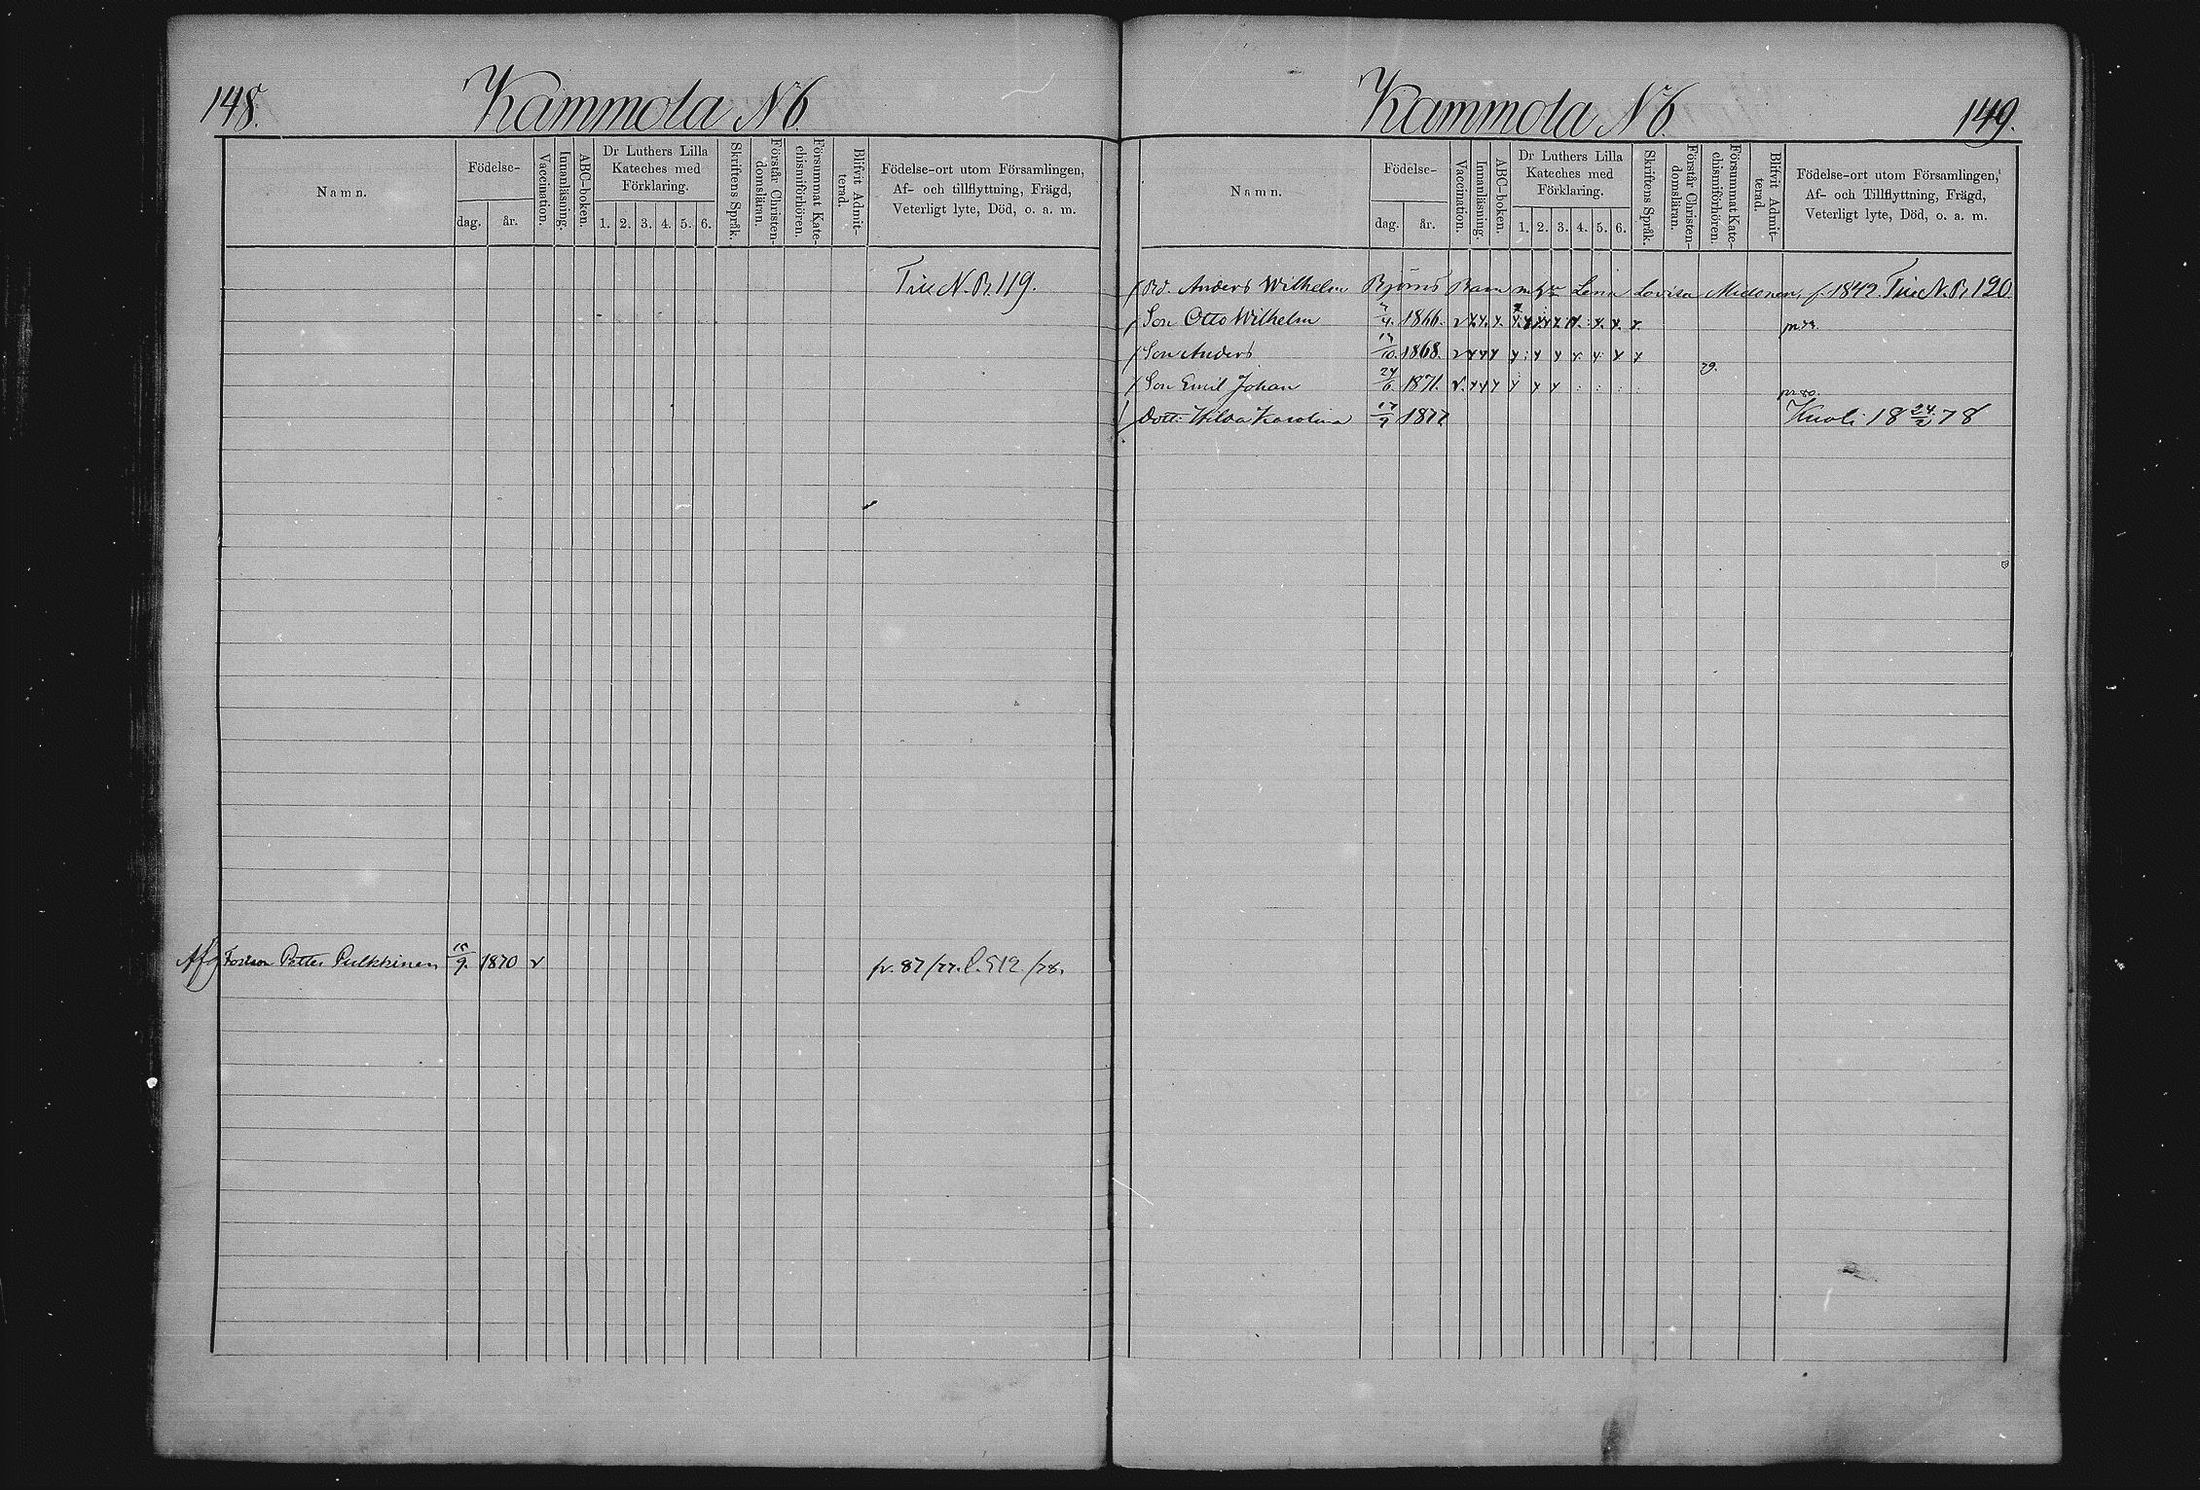 148.
Kammola N 6
Namn.
Födelse-
dag.
år.
Vaccination.
Innanläsning.
ABC-boken.
Dr Luthers Lilla
Kateches med
Förklaring.
1. 2. 3. 4. 5. 6.
Skriftens Språk.
Förstår Christen-
domsläran.
Försummat Kate-
chismiförhören.
Blifvit Admit-
terad.
Födelse-ort utom Församlingen,
Af- och tillflyttning, Frägd,
Veterligt lyte, Död, o. a. m.
N. B. 119.
Afg Fostson Petter Pulkkinen 15/9. 1870 v fr. 87/77. 512./78.
Kammola N 6
149.
Namn.
Födelse-
dag.
år.
Vaccination.
Innanläsning.
ABC-boken.
Dr Luthers Lilla
Kateches med
Förklaring.
1. 2. 3. 4. 5. 6.
Skriftens Språk.
Förstår Christen-
domsläran.
Försummat Kate-
chismiförhören.
Blifvit Admit-
terad.
Födelse-ort utom Församlingen,
Af- och Tillflyttning, Frägd,
Veterligt lyte, Död, o. a. m.
Anders Wilhelm Björns Barn Lena Lovisa f. 1842. N. B. 120
Son Otto Wilhelm 1866.
Son Anders 1868.
79.
Son Emil Johan 24/6 1871.
Dott: Hilda Karolina 17/9 1877 Kuoli 18 24/2 78